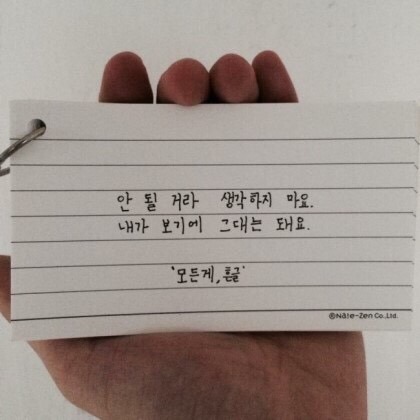 안 될 거라 생각하지 마요.
내가 보기에 그대는 돼요.
'모든게, 흔글'
©Nale-Zen Co.,Ltd.